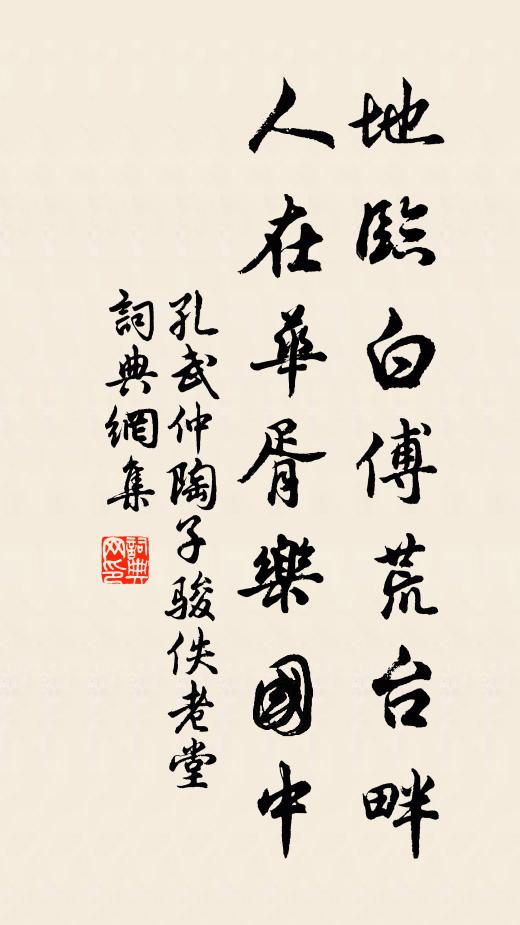 地臨白傅荒台畔
人在華胥樂國中
孔武仲陶子駿佚老堂
詞典網集
詞典网印